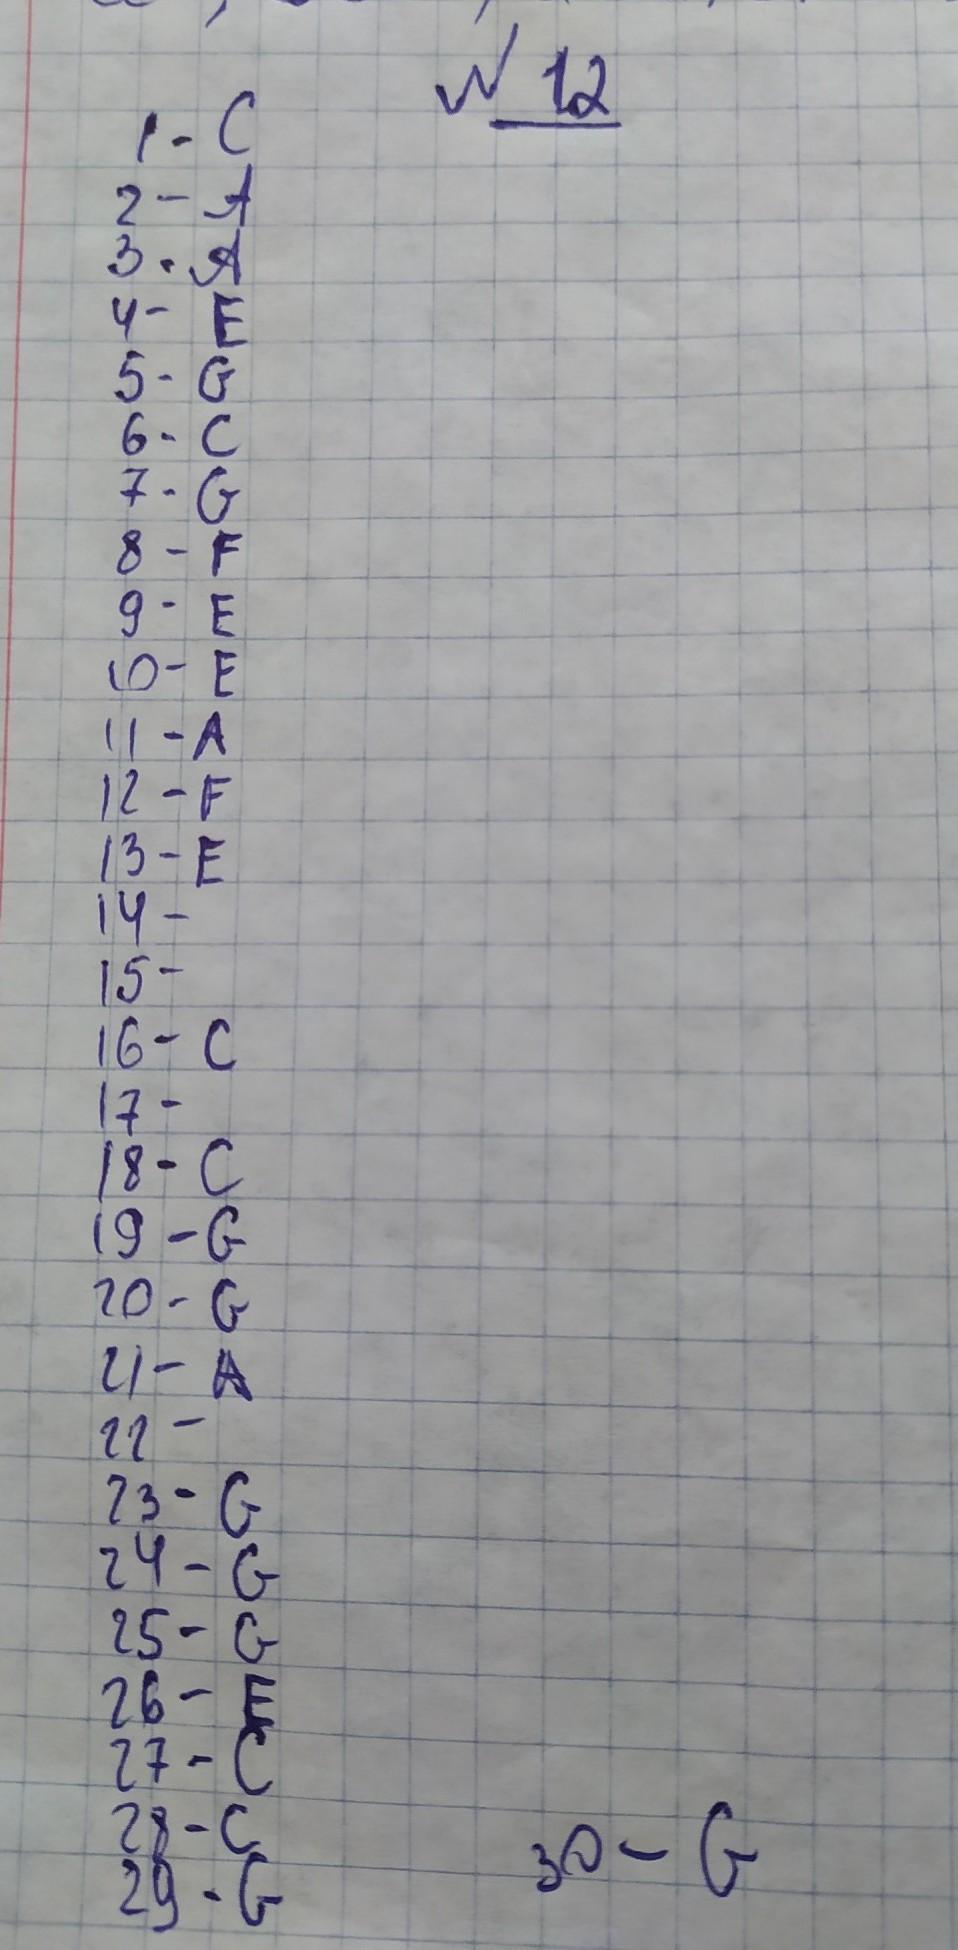 № 12
1 - C
2 - A
3 - A
4 - E
5 - G
6 - C
7 - G
8 - F
9 - E
10 - E
11 - A
12 - F
13 - E
14 -
15 -
16 - C
17 -
18 - C
19 - G
20 - G
21 - A
22 -
23 - G
24 - G
25 - G
26 - E
27 - C
28 - C
29 - G
30 - G